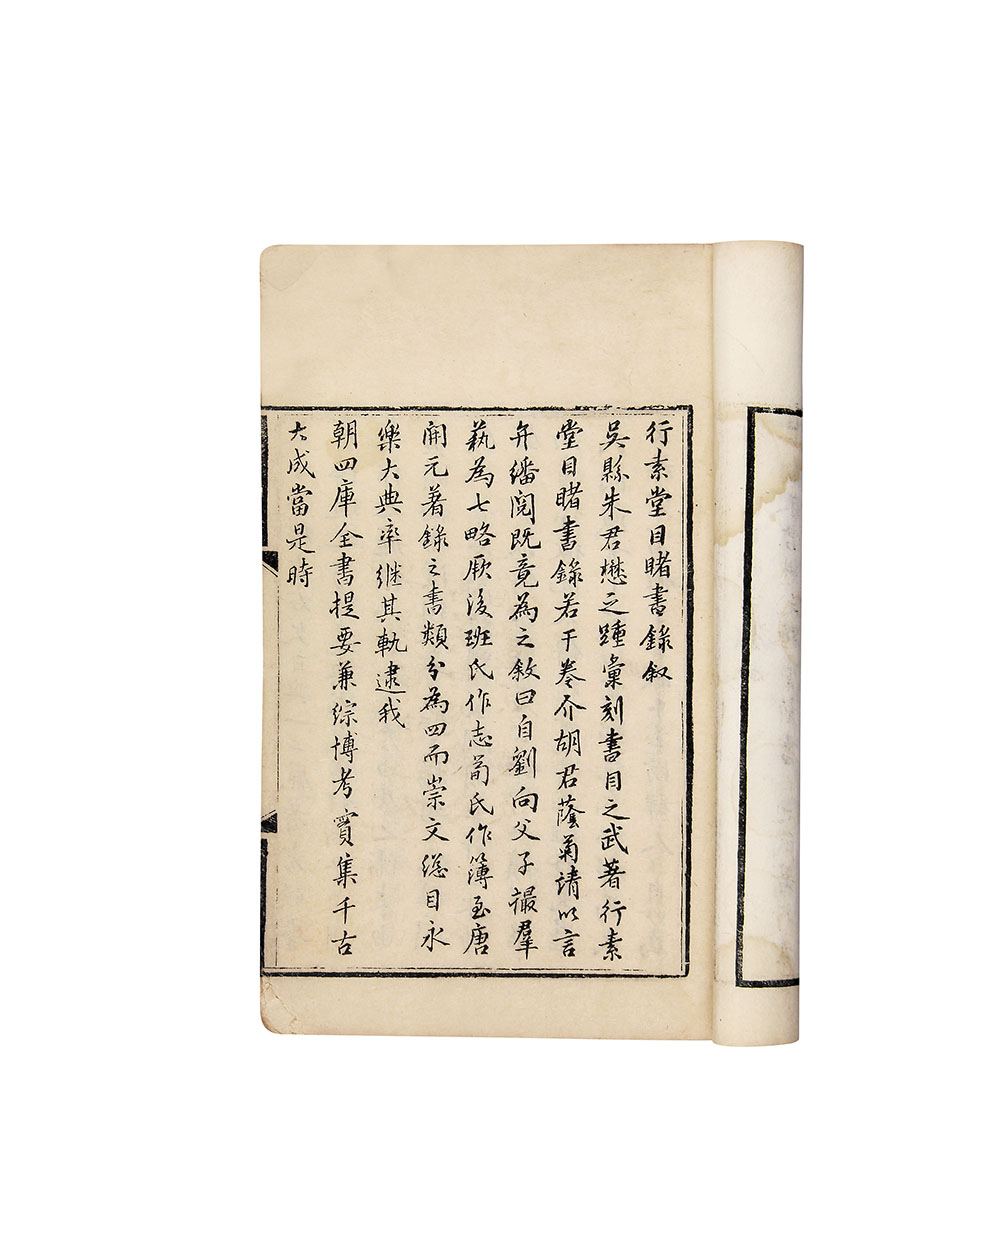 行素堂目睹書錄叙
吳縣朱君懋之踵彙刻書目之武著行素
堂目睹書錄若干卷介胡君蔭菊請以言
弁繙閱既竟為之敘曰自劉向父子撮羣
藝為七略厥後班氏作志荀氏作簿至唐
開元著錄之書類分為四而崇文緫目永
樂大典率継其軌逮我
朝四庫全書提要兼綜博考實集千古
大成當是時